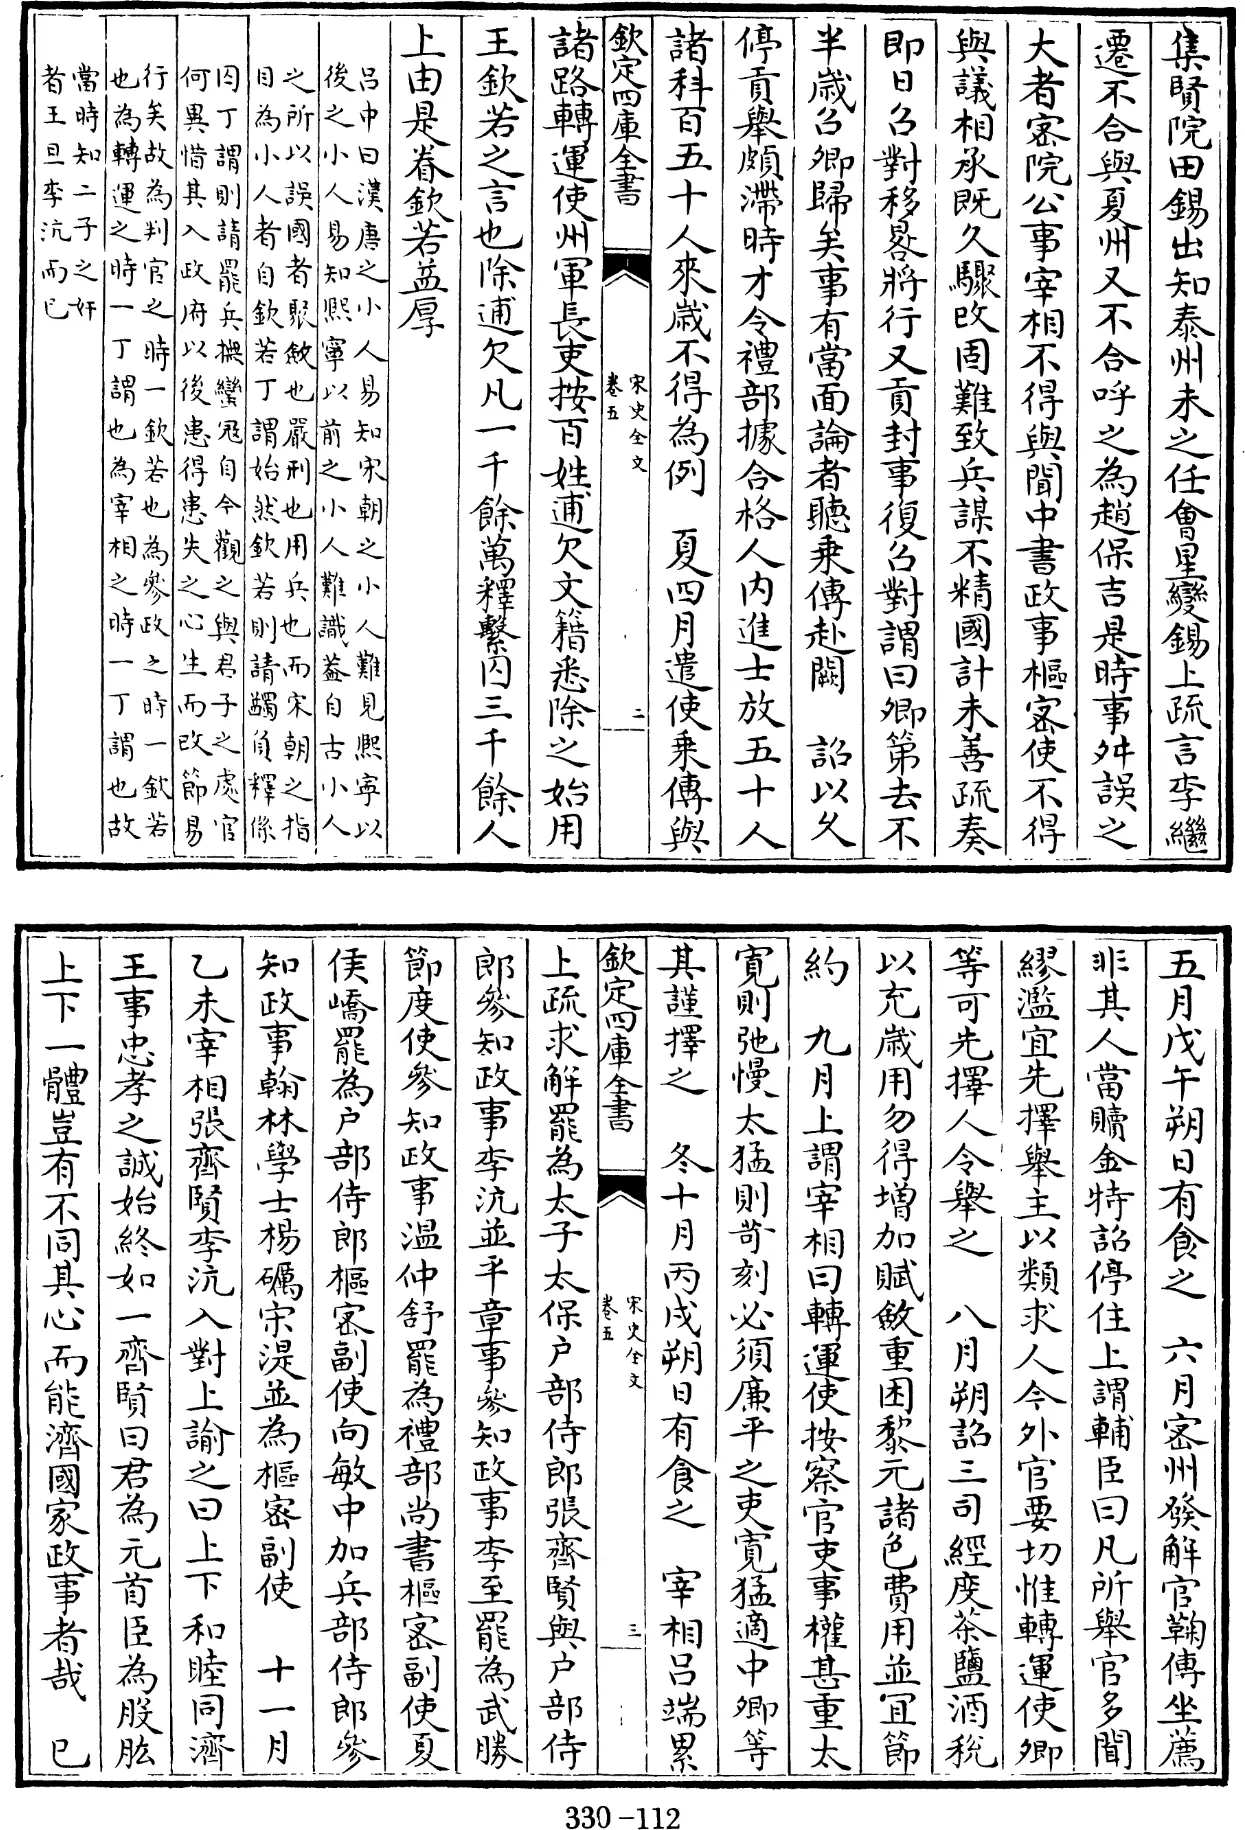 集賢院田錫出知泰州未之任會星變錫上疏言李繼
遷不合與夏州又不合呼之為趙保吉是時事舛誤之
大者宻院公事宰相不得與聞中書政事樞宻使不得
與議相承既久驟改固難致兵謀不精國計未善疏奏
即日召對移晷將行又貢封事復召對謂曰卿第去不
半歳召卿歸矣事有當面論者聽乘傳赴闕　詔以久
停貢舉頗滯時才令禮部據合格人内進士放五十人
諸科百五十人來歳不得為例　夏四月遣使乘傳與
欽定四庫全書
宋史全文
卷五
二
諸路轉運使州軍長吏按百姓逋欠文籍悉除之始用
王欽若之言也除逋欠凡一千餘萬釋繫囚三千餘人
上由是眷欽若益厚
吕中曰漢唐之小人易知宋朝之小人難見熙寧以
後之小人易知熙寧以前之小人難識蓋自古小人
之所以誤國者聚斂也嚴刑也用兵也而宋朝之指
目為小人者自欽若丁謂始然欽若則請蠲負釋係
囚丁謂則請罷兵撫蠻冦自今觀之與君子之處官
何異惜其入政府以後患得患失之心生而改節易
行矣故為判官之時一欽若也為參政之時一欽若
也為轉運之時一丁謂也為宰相之時一丁謂也故
當時知二子之奸
者王旦李沆而已
五月戊午朔日有食之　六月宻州發解官鞠傳坐薦
非其人當贖金特詔停住上謂輔臣曰凡所舉官多聞
繆濫宜先擇舉主以類求人今外官要切惟轉運使卿
等可先擇人令舉之　八月朔詔三司經度茶鹽酒税
以充歳用勿得増加賦斂重困黎元諸色費用並宜節
約　九月上謂宰相曰轉運使按察官吏事權甚重太
寛則弛慢太猛則苛刻必須廉平之吏寛猛適中卿等
其謹擇之　冬十月丙戌朔日有食之　宰相吕端累
欽定四庫全書
宋史全文
卷五
三
上疏求解罷為太子太保户部侍郎張齊賢與户部侍
郎參知政事李沆並平章事參知政事李至罷為武勝
節度使參知政事温仲舒罷為禮部尚書樞宻副使夏
侯嶠罷為户部侍郎樞宻副使向敏中加兵部侍郎參
知政事翰林學士楊礪宋湜並為樞宻副使　十一月
乙未宰相張齊賢李沆入對上諭之曰上下和睦同濟
王事忠孝之誠始終如一齊賢曰君為元首臣為股肱
上下一體豈有不同其心而能濟國家政事者哉　已
330-112